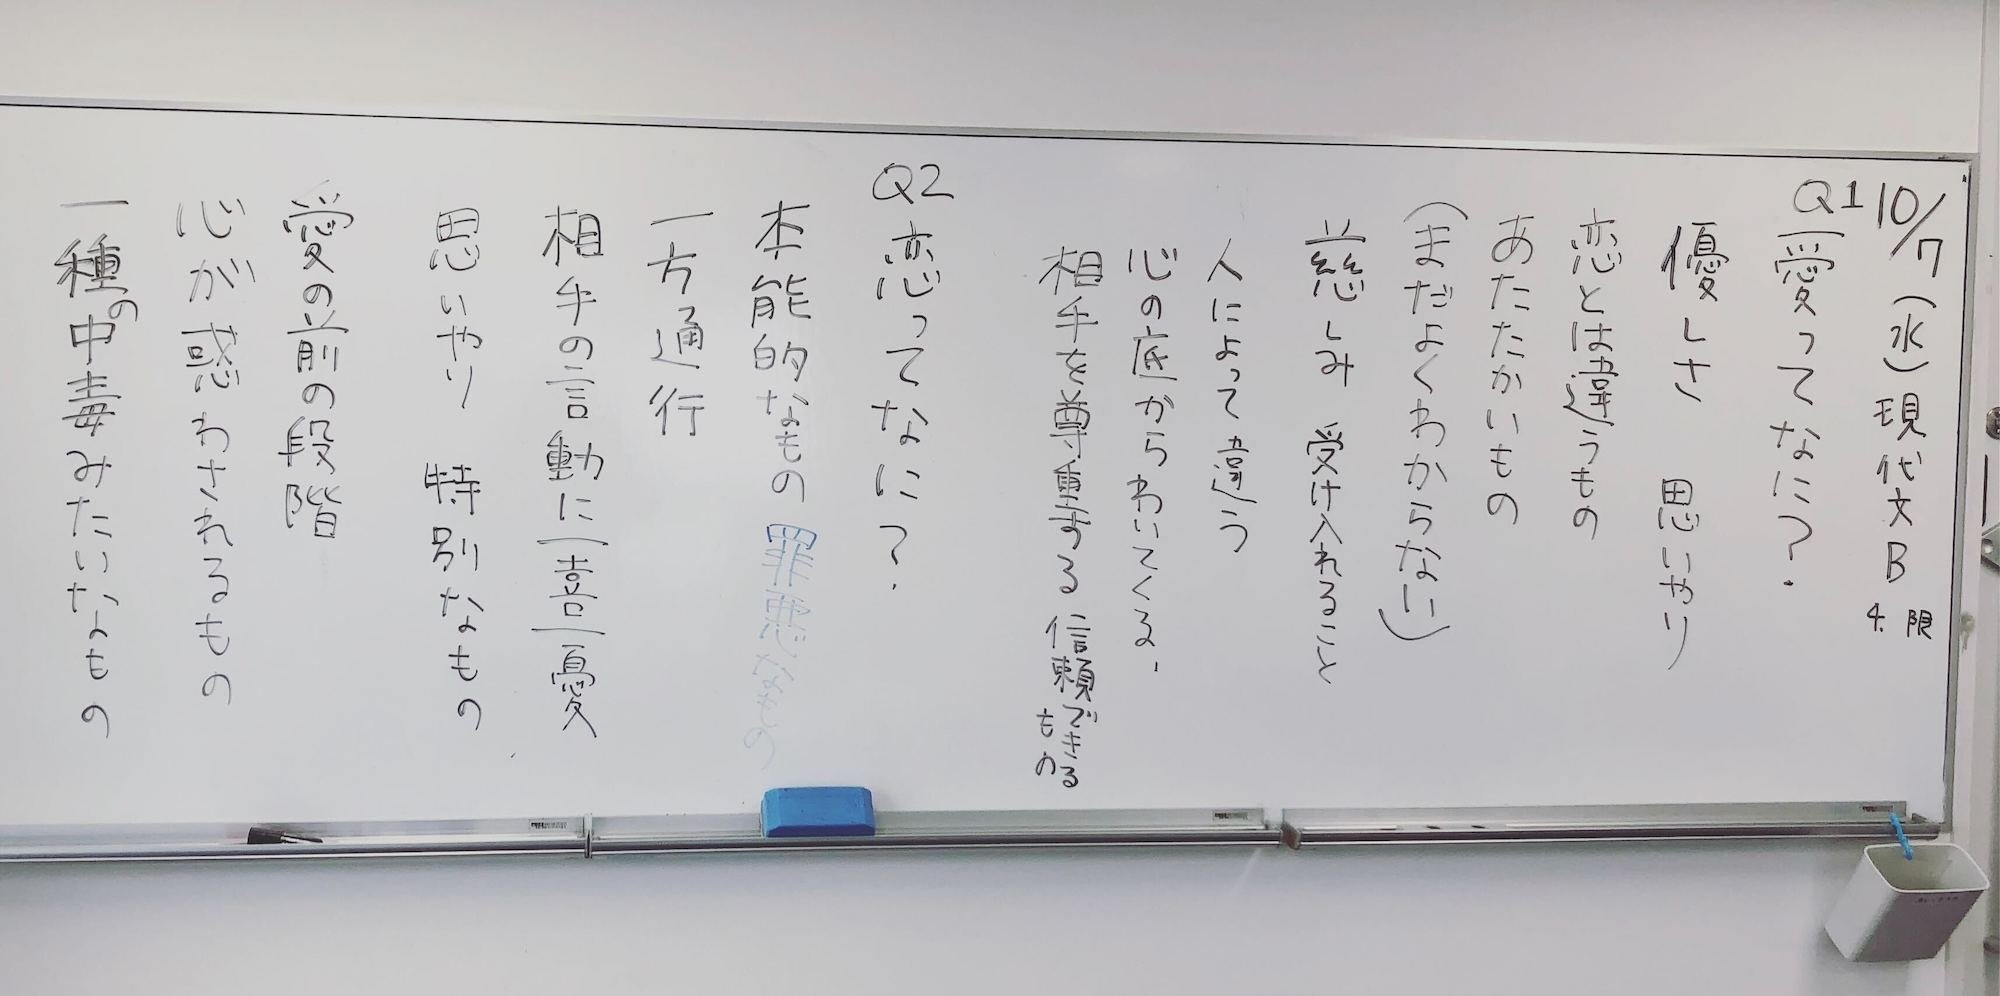 10/7(水)現代文B 4.限
Q1 愛ってなに?
優しさ 思いやり
恋とは違うもの
あたたかいもの
(まだよくわからない)
慈しみ 受け入れること
人によって違う
心の底からわいてくる.
相手を尊重する 信頼できるもの
Q2 恋ってなに?
本能的なもの 罪悪なもの
一方通行
相手の言動に一喜一憂
思いやり 特別なもの
愛の前の段階
心が惑わされるもの
一種の中毒みたいなもの